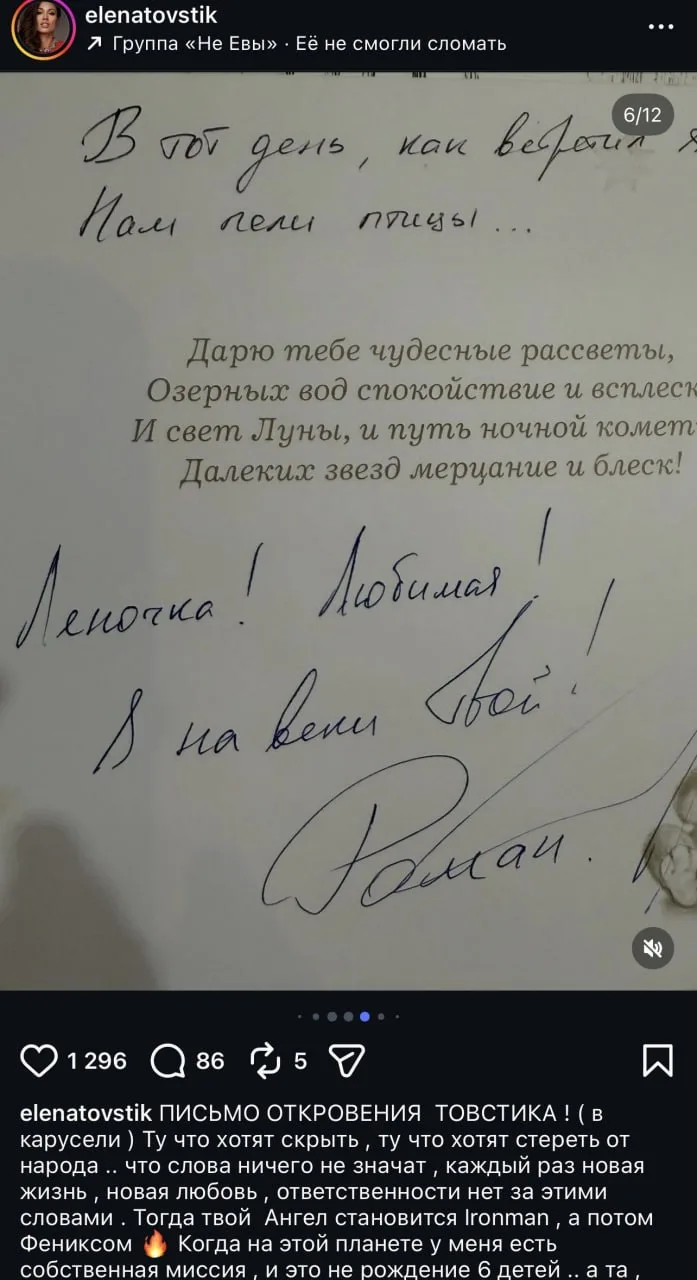 elenatovstik
Группа «Не Евы» · Её не смогли сломать
6/12
В тот день, как встретил я
Нам пели птицы...
Дарю тебе чудесные рассветы,
Озерных вод спокойствие и всплеск
И свет Луны, и путь ночной комет
Далеких звезд мерцание и блеск!
Леночка! Любимая!
Я на веки твой!
Роман.
1 296 86 5
elenatovstik ПИСЬМО ОТКРОВЕНИЯ ТОВСТИКА ! ( в
карусели ) Ту что хотят скрыть , ту что хотят стереть от
народа .. что слова ничего не значат , каждый раз новая
жизнь , новая любовь , ответственности нет за этими
словами . Тогда твой Ангел становится Ironman , а потом
Фениксом 🔥 Когда на этой планете у меня есть
собственная миссия , и это не рождение 6 детей .. а та ,